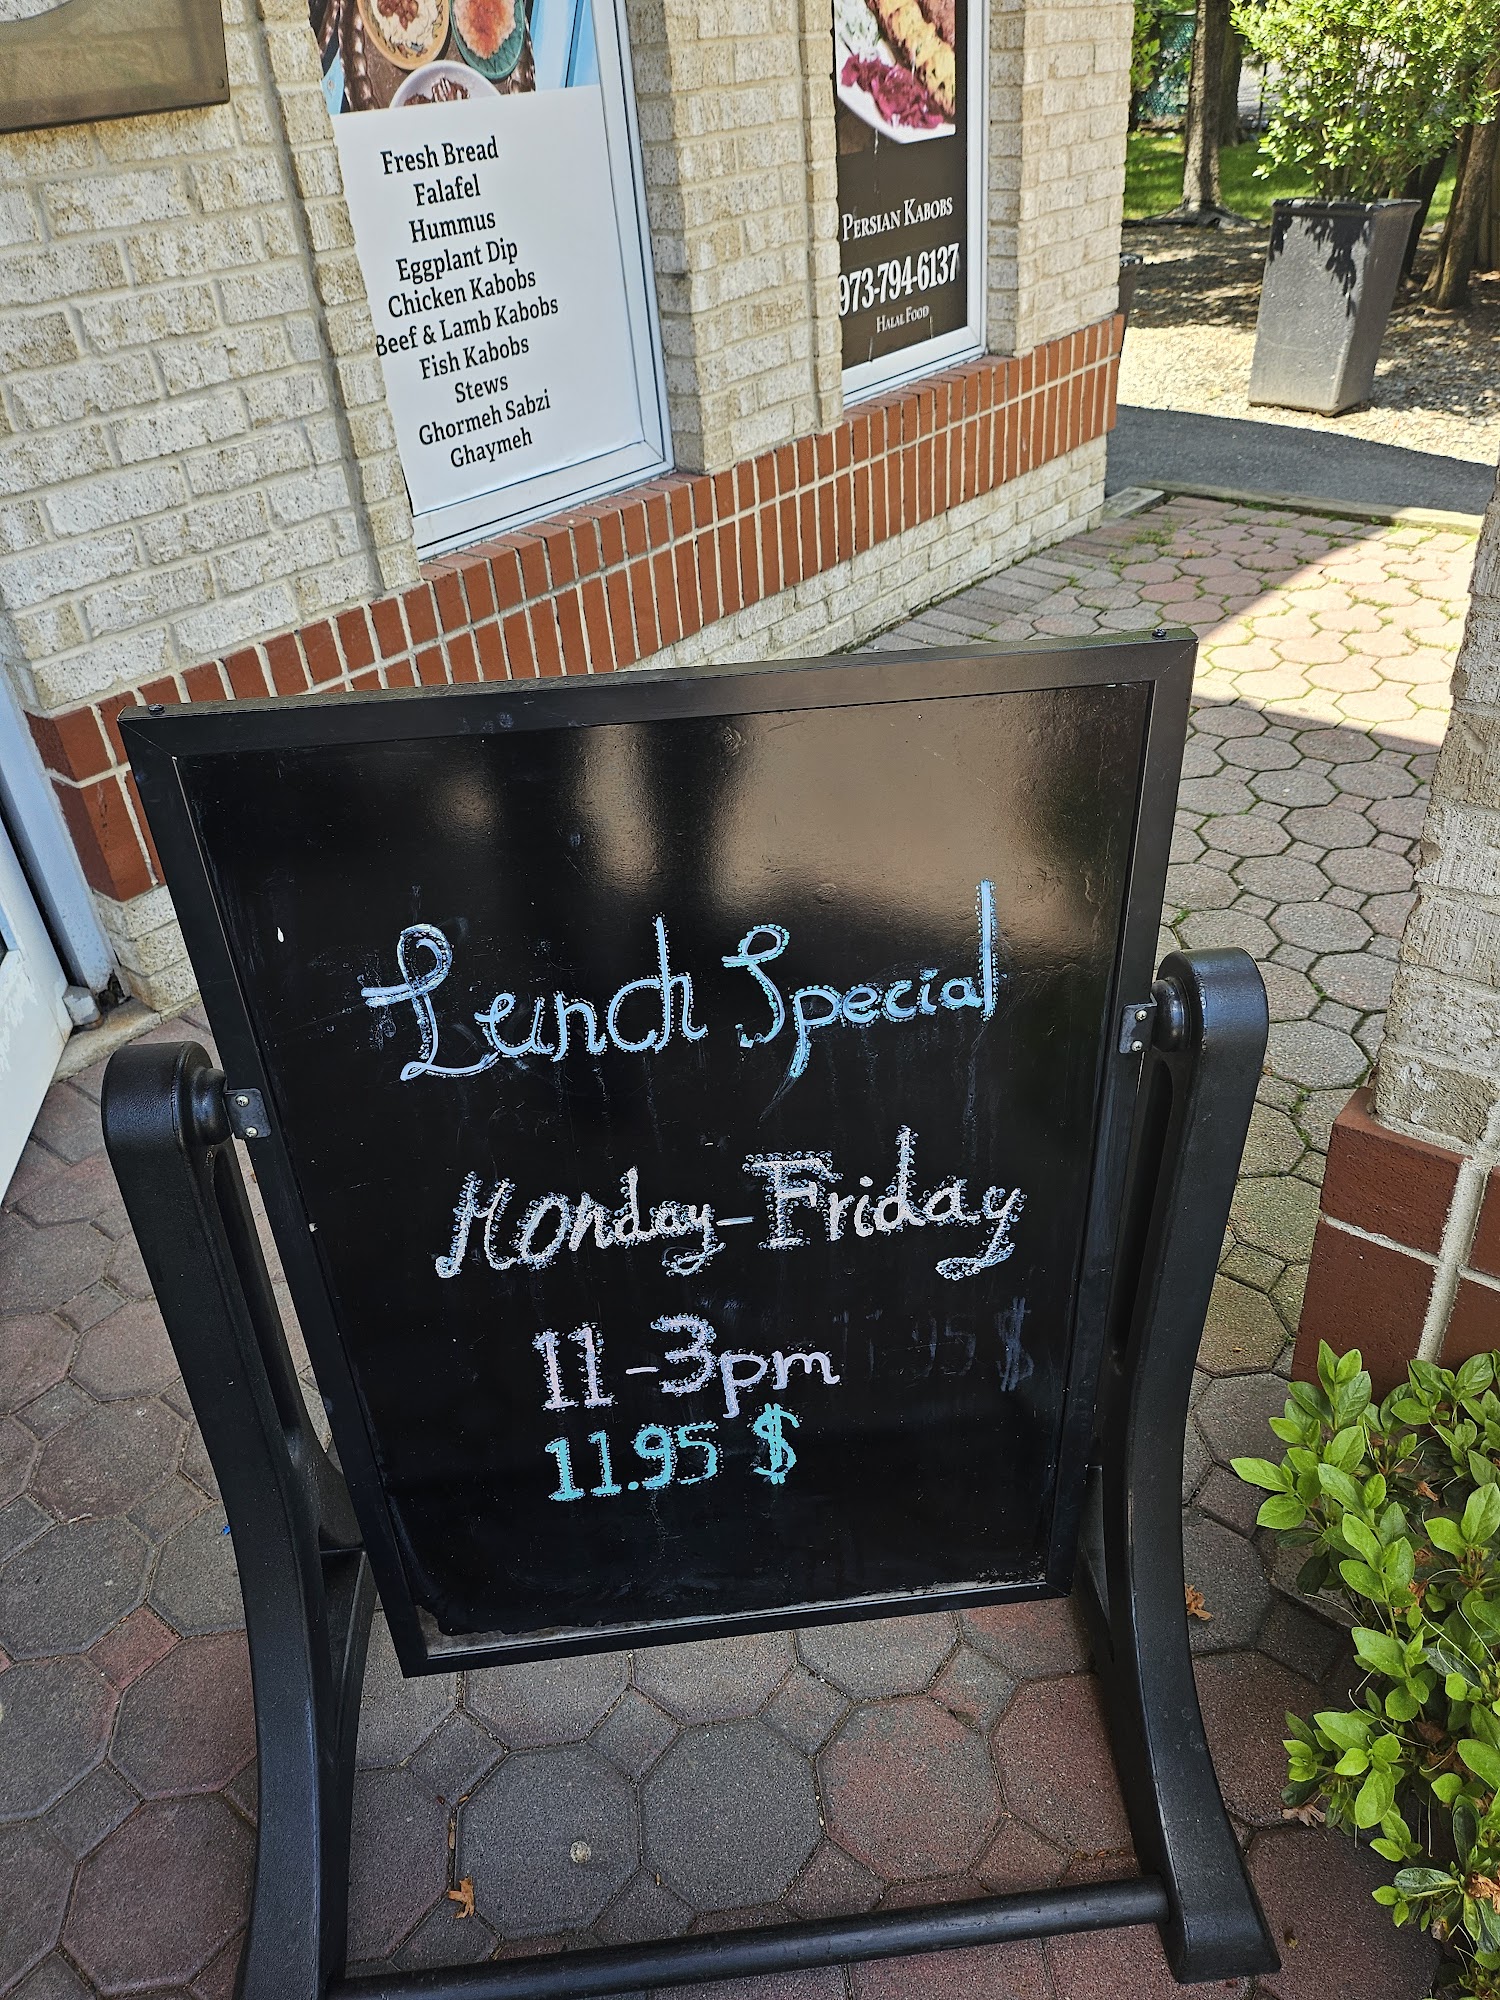 Fresh Bread
Falafel
Hummus
Eggplant Dip
Chicken Kabobs
Beef & Lamb Kabobs
Fish Kabobs
Stews
Ghormeh Sabzi
Ghaymeh
Persian Kabobs
973-794-6137
Halal Food
Lunch Special
Monday-Friday
11-3pm
11.95 $
11.95 $